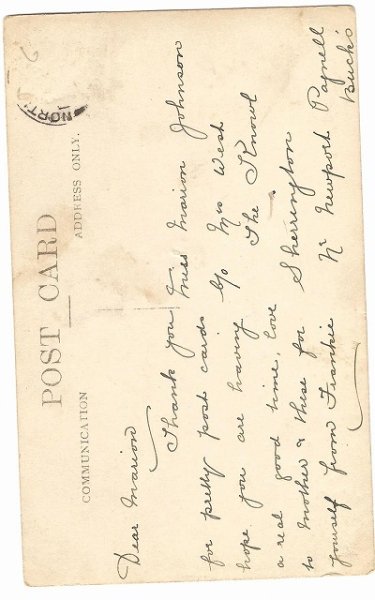 POST CARD
COMMUNICATION
ADDRESS ONLY.
NORTH
Dear Marion
Thank you
for pretty post cards
hope you are having
a real good time, love
to Mother & these for
yourself from Frankie
Miss Marion Johnson
c/o Mrs West
The Knowl
Sherrington
Nr Newport Pagnell
Bucks